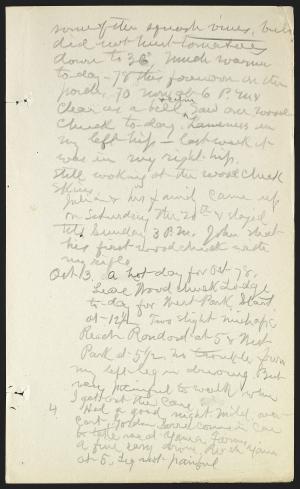 some of the squash vines, but
did not hurt tomatoes
down to 36°, Much warmer
to-day - 78 this forenoon on the
porch, 70 now at 6 P.M.
Clear as a bell. Saw one wood
Chuck to-day. Lameness in
my left hip - last week it
was in my right hip.
Still working at the wood Chuck
Skins.
Julian & his family came up
on Saturday the 20th & stayed
till Sunday 3 P.M. John shot
his first woodchuck with
my rifle.
Oct 3. A hot day for Oct, 78.
Leave Woodchuck Lodge
to-day for West Park. Start
at 12½. Two slight mishaps,
Reach Rondout at 5 & West
Park at 5½. No trouble from
my left leg in driving. But
very painful to walk when
I get out the Car.
4 Had a good night. Mild, over
cast. Golden Barrel comes in Car
to take me to Yama Farms.
a fine easy drive. Reach Yama
at 5. Leg not painful